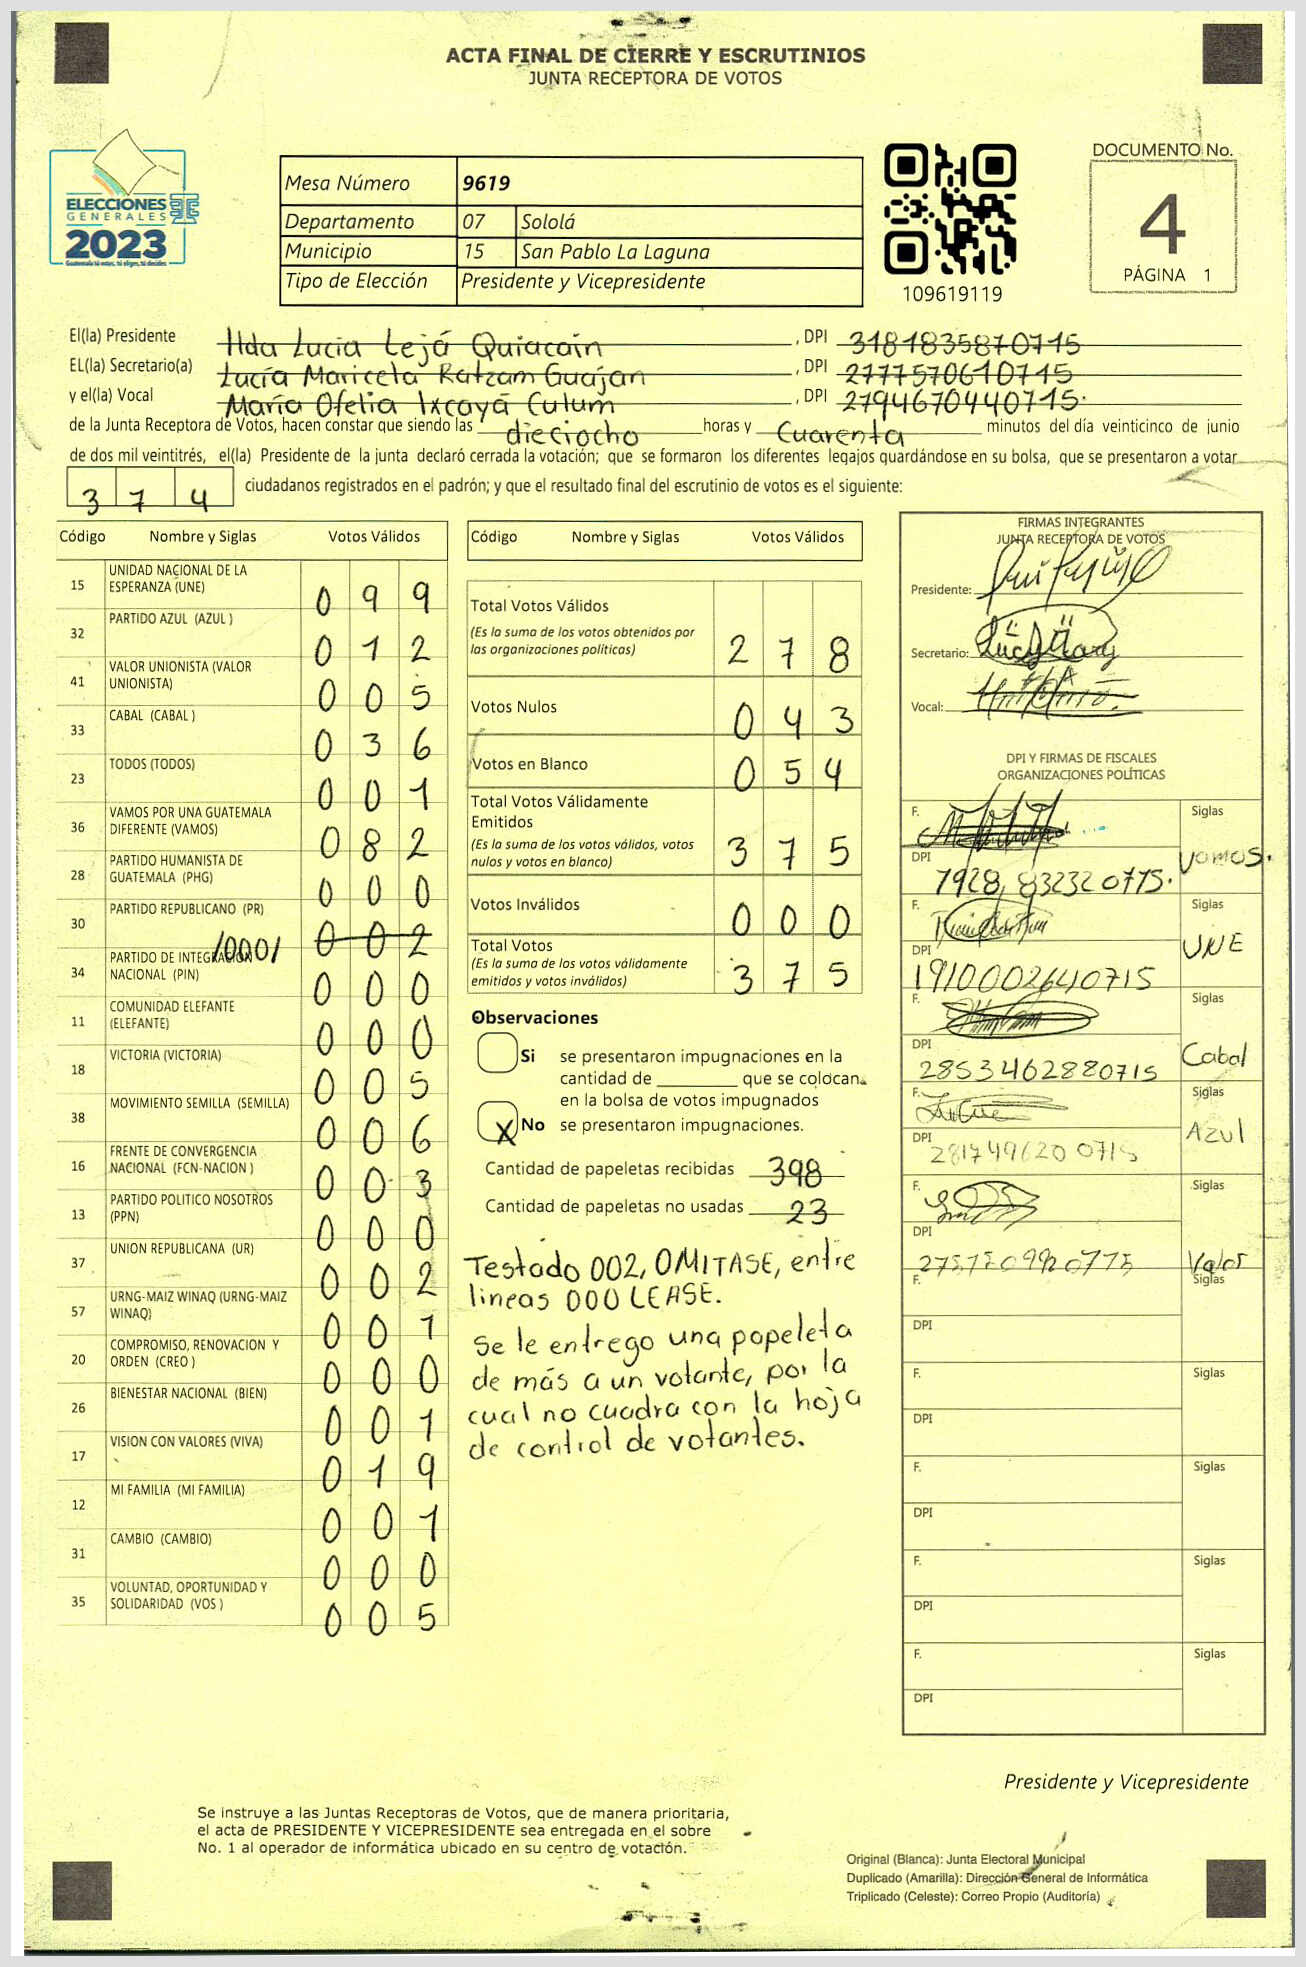 ACTA FINAL DE CIERRE Y ESCRUTINIOS
JUNTA RECEPTORA DE VOTOS
DOCUMENTO No.
4
PÁGINA 1
ELECCIONES
GENERALES
2023
Guatemala tú votas, tú eliges, tú decides
Mesa Número 9619
Departamento 07 Sololá
Municipio 15 San Pablo La Laguna
Tipo de Elección Presidente y Vicepresidente
109619119
El(la) Presidente Ilda Lucia Lejá Quiacaín , DPI 3181835870715
EL(la) Secretario(a) Lucía Maricela Ratzam Guajan , DPI 2777570610715
y el(la) Vocal María Ofelia Ixcayá Culum , DPI 2794670440715.
de la Junta Receptora de Votos, hacen constar que siendo las dieciocho horas y Cuarenta minutos del día veinticinco de junio
de dos mil veintitrés, el(la) Presidente de la junta declaró cerrada la votación; que se formaron los diferentes legajos guardándose en su bolsa, que se presentaron a votar
374 ciudadanos registrados en el padrón; y que el resultado final del escrutinio de votos es el siguiente:
Código Nombre y Siglas Votos Válidos
15 UNIDAD NACIONAL DE LA
ESPERANZA (UNE) 099
32 PARTIDO AZUL (AZUL ) 012
41 VALOR UNIONISTA (VALOR
UNIONISTA) 005
33 CABAL (CABAL ) 036
23 TODOS (TODOS) 001
36 VAMOS POR UNA GUATEMALA
DIFERENTE (VAMOS) 082
28 PARTIDO HUMANISTA DE
GUATEMALA (PHG) 000
30 PARTIDO REPUBLICANO (PR) /000/ 002
34 PARTIDO DE INTEGRACION
NACIONAL (PIN) 000
11 COMUNIDAD ELEFANTE
(ELEFANTE) 000
18 VICTORIA (VICTORIA) 005
38 MOVIMIENTO SEMILLA (SEMILLA) 006
16 FRENTE DE CONVERGENCIA
NACIONAL (FCN-NACION ) 003
13 PARTIDO POLITICO NOSOTROS
(PPN) 000
37 UNION REPUBLICANA (UR) 002
57 URNG-MAIZ WINAQ (URNG-MAIZ
WINAQ) 001
20 COMPROMISO, RENOVACION Y
ORDEN (CREO ) 000
26 BIENESTAR NACIONAL (BIEN) 001
17 VISION CON VALORES (VIVA) 019
12 MI FAMILIA (MI FAMILIA) 001
31 CAMBIO (CAMBIO) 000
35 VOLUNTAD, OPORTUNIDAD Y
SOLIDARIDAD (VOS ) 005
Código Nombre y Siglas Votos Válidos
Total Votos Válidos
(Es la suma de los votos obtenidos por
las organizaciones políticas) 278
Votos Nulos 043
Votos en Blanco 054
Total Votos Válidamente
Emitidos
(Es la suma de los votos válidos, votos
nulos y votos en blanco) 375
Votos Inválidos 000
Total Votos
(Es la suma de los votos válidamente
emitidos y votos inválidos) 375
Observaciones
Si se presentaron impugnaciones en la
cantidad de ________ que se colocan
en la bolsa de votos impugnados
X No se presentaron impugnaciones.
Cantidad de papeletas recibidas 398
Cantidad de papeletas no usadas 23
Testado 002, OMITASE, entre
lineas 000 LEASE.
Se le entrego una papeleta
de más a un votante, por la
cual no cuadra con la hoja
de control de votantes.
FIRMAS INTEGRANTES
JUNTA RECEPTORA DE VOTOS
Presidente:
Secretario:
Vocal:
DPI Y FIRMAS DE FISCALES
ORGANIZACIONES POLÍTICAS
F. Siglas
DPI Vamos.
F. Siglas
DPI 1910002640715 UNE
F. Siglas
DPI 2853462880715 Cabal
F. Siglas
DPI 2817496200715 Azul
F. Siglas
DPI Valor
F. Siglas
DPI
F. Siglas
DPI
F. Siglas
DPI
F. Siglas
DPI
F. Siglas
DPI
Presidente y Vicepresidente
Se instruye a las Juntas Receptoras de Votos, que de manera prioritaria,
el acta de PRESIDENTE Y VICEPRESIDENTE sea entregada en el sobre
No. 1 al operador de informática ubicado en su centro de votación.
Original (Blanca): Junta Electoral Municipal
Duplicado (Amarilla): Dirección General de Informática
Triplicado (Celeste): Correo Propio (Auditoría)